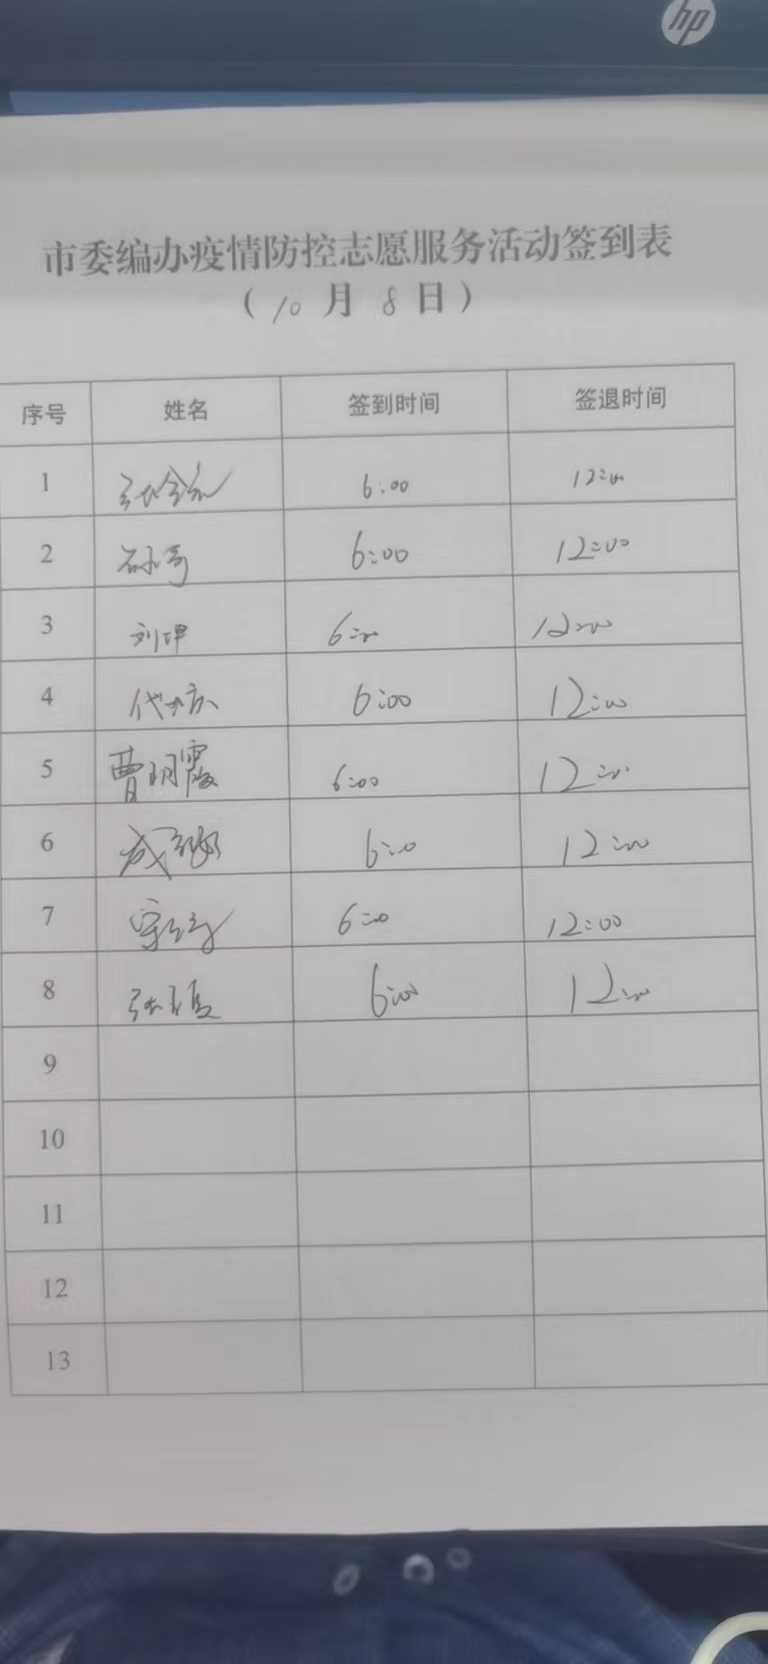 hp
市委编办疫情防控志愿服务活动签到表
(10月8日)
序号 姓名 签到时间 签退时间
1 6:00 12:00
2 6:00 12:00
3 刘坤 6:00 12:00
4 6:00 12:00
5 曹明霞 6:00 12:00
6 6:00 12:00
7 6:00 12:00
8 6:00 12:00
9
10
11
12
13